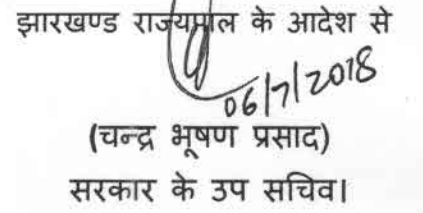 झारखण्ड राज्यपाल के आदेश से
06/7/2018
(चन्द्र भूषण प्रसाद)
सरकार के उप सचिव।